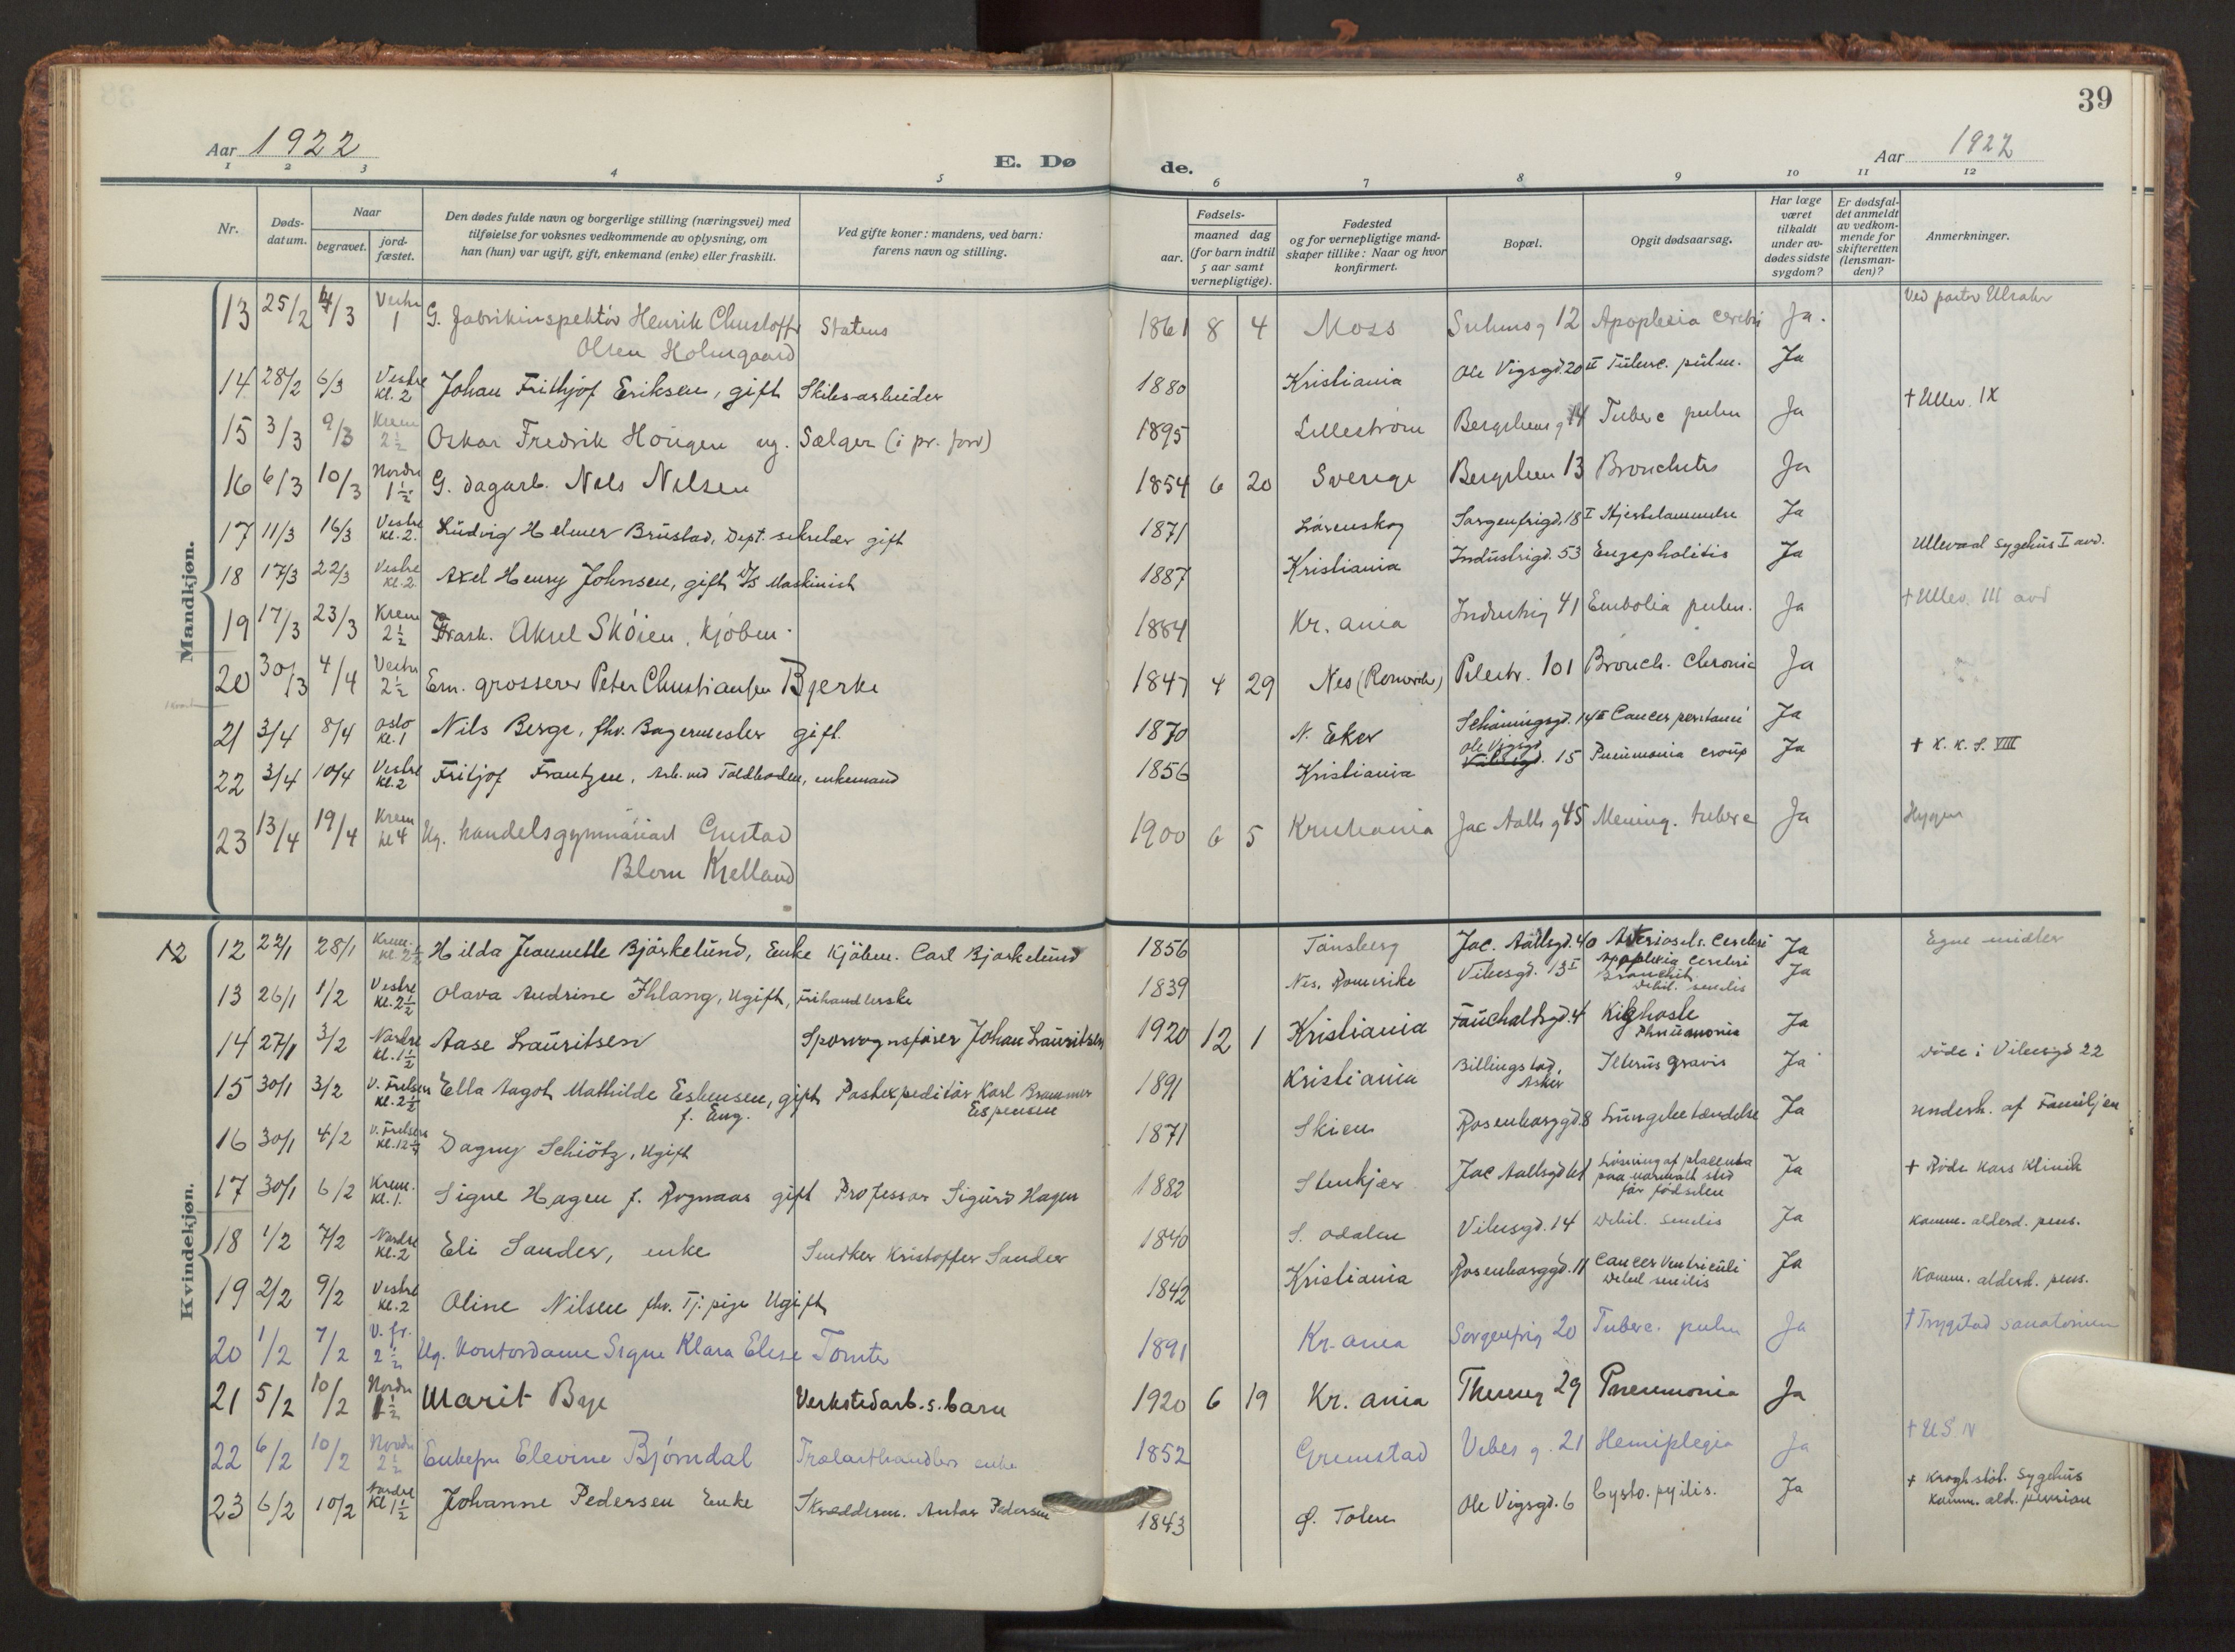 39
Aar 1922
E. Dø
de.
Aar 1922
1 2 3 4 5 6 7 8 9 10 11 12
Nr.
Døds-
datum.
Naar
begravet.
jord-
fæstet.
Den dødes fulde navn og borgerlige stilling (næringsvei) med
tilføielse for voksnes vedkommende av oplysning, om
han (hun) var ugift, gift, enkemand (enke) eller fraskilt.
Ved gifte koner: mandens, ved barn:
farens navn og stilling.
Fødsels-
aar.
maaned dag
(for barn indtil
5 aar samt
vernepligtige).
Fødested
og for vernepligtige mand-
skaper tillike: Naar og hvor
konfirmert.
Bopæl.
Opgit dødsaarsag.
Har læge
været
tilkaldt
under av-
dødes sidste
sygdom?
Er dødsfal-
det anmeldt
av vedkom-
mende for
skifteretten
(lensman-
den)?
Anmerkninger.
Mandkjøn.
Ved pastor
13 25/2 4/3 Vestre 1 G. fabrikinspektör Henrik Christoffer Statens 1861 8 4 Moss Suhmsg 12 Apoplexia cerebri Ja.
Olsen Holmgaard
14 28/2 6/3 Vestre kl. 2 Johan Frithjof Eriksen, gift 1880 Kristiania Ole Vigsgd. 20 II Tuberc. pulm. Ja
15 3/3 9/3 Krem 2½ Oskar Fredrik Horigen ug. Sælger (i pr. forr) 1895 Lilleström Bergsliens g 14 Tuberc pulm Ja † Ullev. IX
16 6/3 10/3 Nordre 1½ G. dagarb. Nils Nilsen 1854 6 20 Sverige Bergslien 13 Bronchitis Ja
17 11/3 16/3 Vestre kl. 2. Ludvig Helmer Brustad, Dept. sekretær gift 1871 Lörenskog Sorgenfrigd. 18 I Hjertelammelse Ja
18 17/3 22/3 Vestre kl. 2 Axel Henry Johnsen, gift D/S Maskinist 1887 Kristiania Industrigd. 53 Engephalitis Ja Ullevaal sygehus I avd.
19 17/3 23/3 Krem 2½ Frask. Aksel Sköien, kjöbm. 1884 Kr. ania Industrig 41 Embolia pulm. Ja † Ullev. III avd
20 30/3 4/4 Vestre 2½ Em. grosserer Peter Christiansen Bjerke 1847 4 29 Nes (Romerike) Pilestr. 101 Bronch. chronic Ja
21 3/4 8/4 Oslo kl. 1 Nils Berge, fhv. Bagermester gift. 1870 N. Eker Schöningsgd. 14 II Cancer Ja
22 3/4 10/4 Vestre kl. 2 Fritjof Frantzen, Arb. ved Toldboden, enkemand 1856 Kristiania Ole Vigsgd. 15 Pneumonia croup Ja † K. K. S. VIII
23 13/4 19/4 Krem kl 4 Ug. handelsgymnasiast Gustav 1900 6 5 Kristiania Jac Aalls g 45 Mening. tuberc Ja
Blom Kielland
Kvindekjøn.
12 12 22/1 28/1 Krem. kl. 2½ Hilda Jeannette Björkelund, Enke Kjöbm. Carl Björkelund 1856 Tönsberg Jac. Aallsgd. 40 Arteriosels. cerebri Ja Egne midler
Apoplexia cerebri
13 26/1 1/2 Vestre kl. 2½ Olava Andrine Ihlang, Ugift, frihandlerske 1839 Nes. Romerike Vibesgd. 13 I Bronchit. Ja
Debil. senilis
14 27/1 3/2 Nordre kl. 1½ Aase Lauritsen Sporvognsförer Johan Lauritsen 1920 12 1 Kristiania Fauchaldsgd. 4 Kighoste Ja
Phneumonia
15 30/1 3/2 V. Frelsers kl. 2½ Ella Aagot Mathilde Espensen, gift Postexpeditör Karl Brammer 1891 Kristiania Billingstad, Icterus gravis Ja Döde i Vibesgd 22
f. Eng. Espensen Asker
16 30/1 4/2 V. Frelsers kl. 12½ Dagny Schiötz, Ugift 1871 Skien Rosenborggd. 8 Lungebetændelse Ja underh. af Familjen
17 30/1 6/2 Krem. kl. 1. Signe Hagen f. Rognaas gift Professor Sigurd Hagen 1882 Stenkjær Jac Aallsgd 61 Lösning af placenta Ja † Röde Kors Klinik
paa normalt sted
för födselen
18 1/2 7/2 Nordre kl. 2 Eli Sander, enke Snedker Kristoffer Sander 1840 S. Odalen Vibesgd. 14 Debil. senilis Ja Komm. alderd. pens.
19 2/2 9/2 Vestre kl. 2 Oline Nilsen fhv. Tj. pige Ugift 1842 Kristiania Rosenborggd. 11 Cancer Ventriculi Ja Komm. alderd. pens.
Debil senilis
20 1/2 7/2 V. fr. 2½ Ug. kontordame Signe Klara Elise Tomter 1891 Kr. ania Sorgenfrig 20 Tuberc. pulm Ja † Trygstad sanatorium
21 5/2 10/2 Nordre 1½ Marit Bye Verkstedarb.s. barn 1920 6 19 Kr. ania Theresg 29 Pneumonia Ja
22 6/2 10/2 Nordre 2½ Enkefru Elevine Björndal Trælasthandlers enke 1852 Grimstad Vibes g. 21 Hemiplegia Ja † U.S. IV
23 6/2 10/2 Nordre kl 1½ Johanne Pedersen Enke Skrædderm. Anton Pedersen 1843 Ø. Toten Ole Vigsgd. 6 Cysto. pyilis. Ja † Krogh stöt. Sygehus
Komm. ald. pension